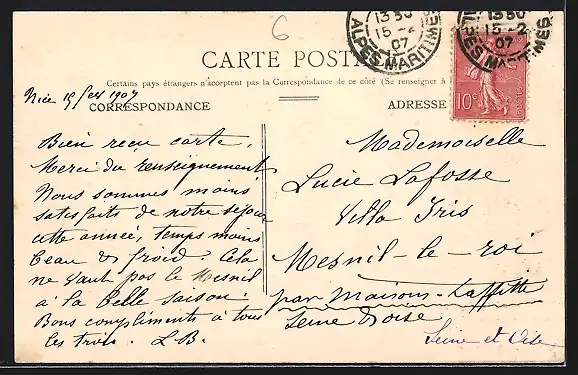 6
1330
15-2
07
ALPES MARITIMES
1330
15-2
07
ALPES MARITIMES
10c
CARTE POSTALE
Certains pays étrangers n'acceptent pas la Correspondance de ce côté (Se renseigner à
CORRESPONDANCE
ADRESSE
Nice 15 fev 1907
Bien reçu carte.
Merci du renseignement
Nous sommes moins
satisfaits de notre séjour
cette année, temps moins
beau & froid. Cela
ne vaut pas le Mesnil
à la belle saison.
Bons compliments à tous
les trois. L B.
Mademoiselle
Lucie Lafosse
Villa Iris
Mesnil-le-roi
par Maisons-Laffitte
Seine & Oise
Seine et Oise